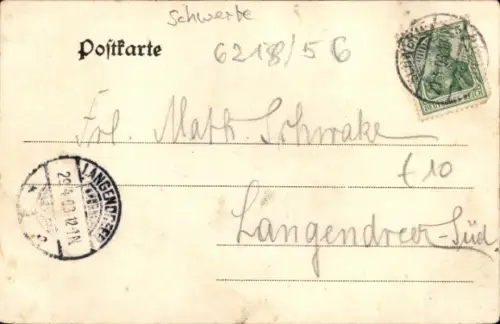 Schwerte
Postkarte
6218/56
Frl. Math. Schwake
€10
Langendreer-Süd
LANGENDREER
29.4.03.12-1N